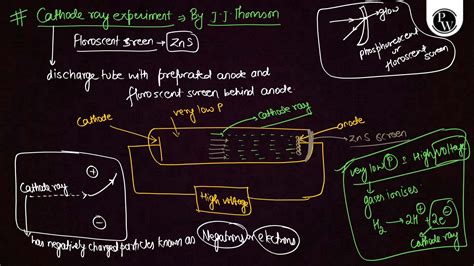 # Cathode ray experiment ⇒ By J.J. Thomson
Floroscent screen → ZnS
discharge tube with prefrated anode and
floroscent screen behind anode
glow
phosphorescent
or
floroscent screen
P
W
cathode
very low P
cathode ray
anode
ZnS screen
High voltage
Cathode ray
⊕
⊖
has negatively charged particles known as Negatrons or electrons
very low P & High voltage
gases ionises:
H₂ → 2H⁺ + 2e⁻
Cathode ray